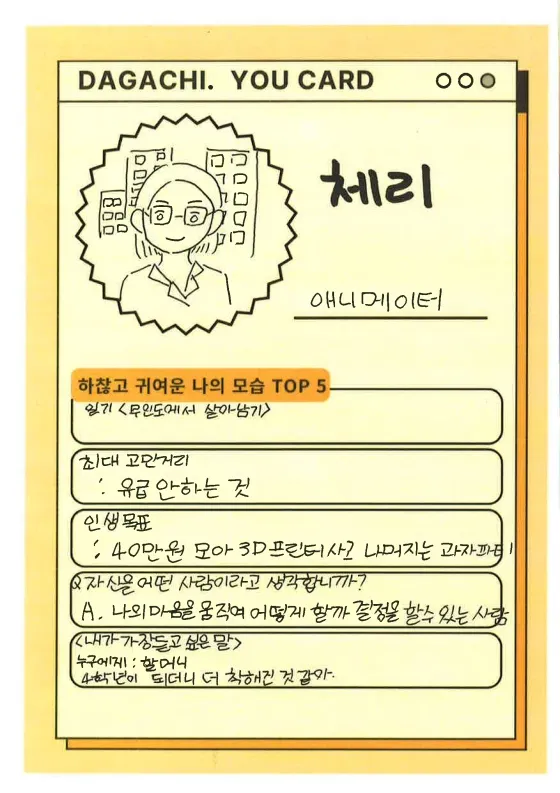 DAGACHI. YOU CARD
체리
애니메이터
하찮고 귀여운 나의 모습 TOP 5
일기 <무인도에서 살아남기>
최대 고민거리
: 유급 안하는 것
인생목표
: 40만원 모아 3D프린터사고 나머지는 과자파티
Q 자신을 어떤 사람이라고 생각합니까?
A. 나의 마음을 움직여 어떻게 할까 결정을 할수 있는 사람
<내가 가장듣고 싶은 말>
누구에게 : 할머니
4학년이 되더니 더 착해진 것 같아.